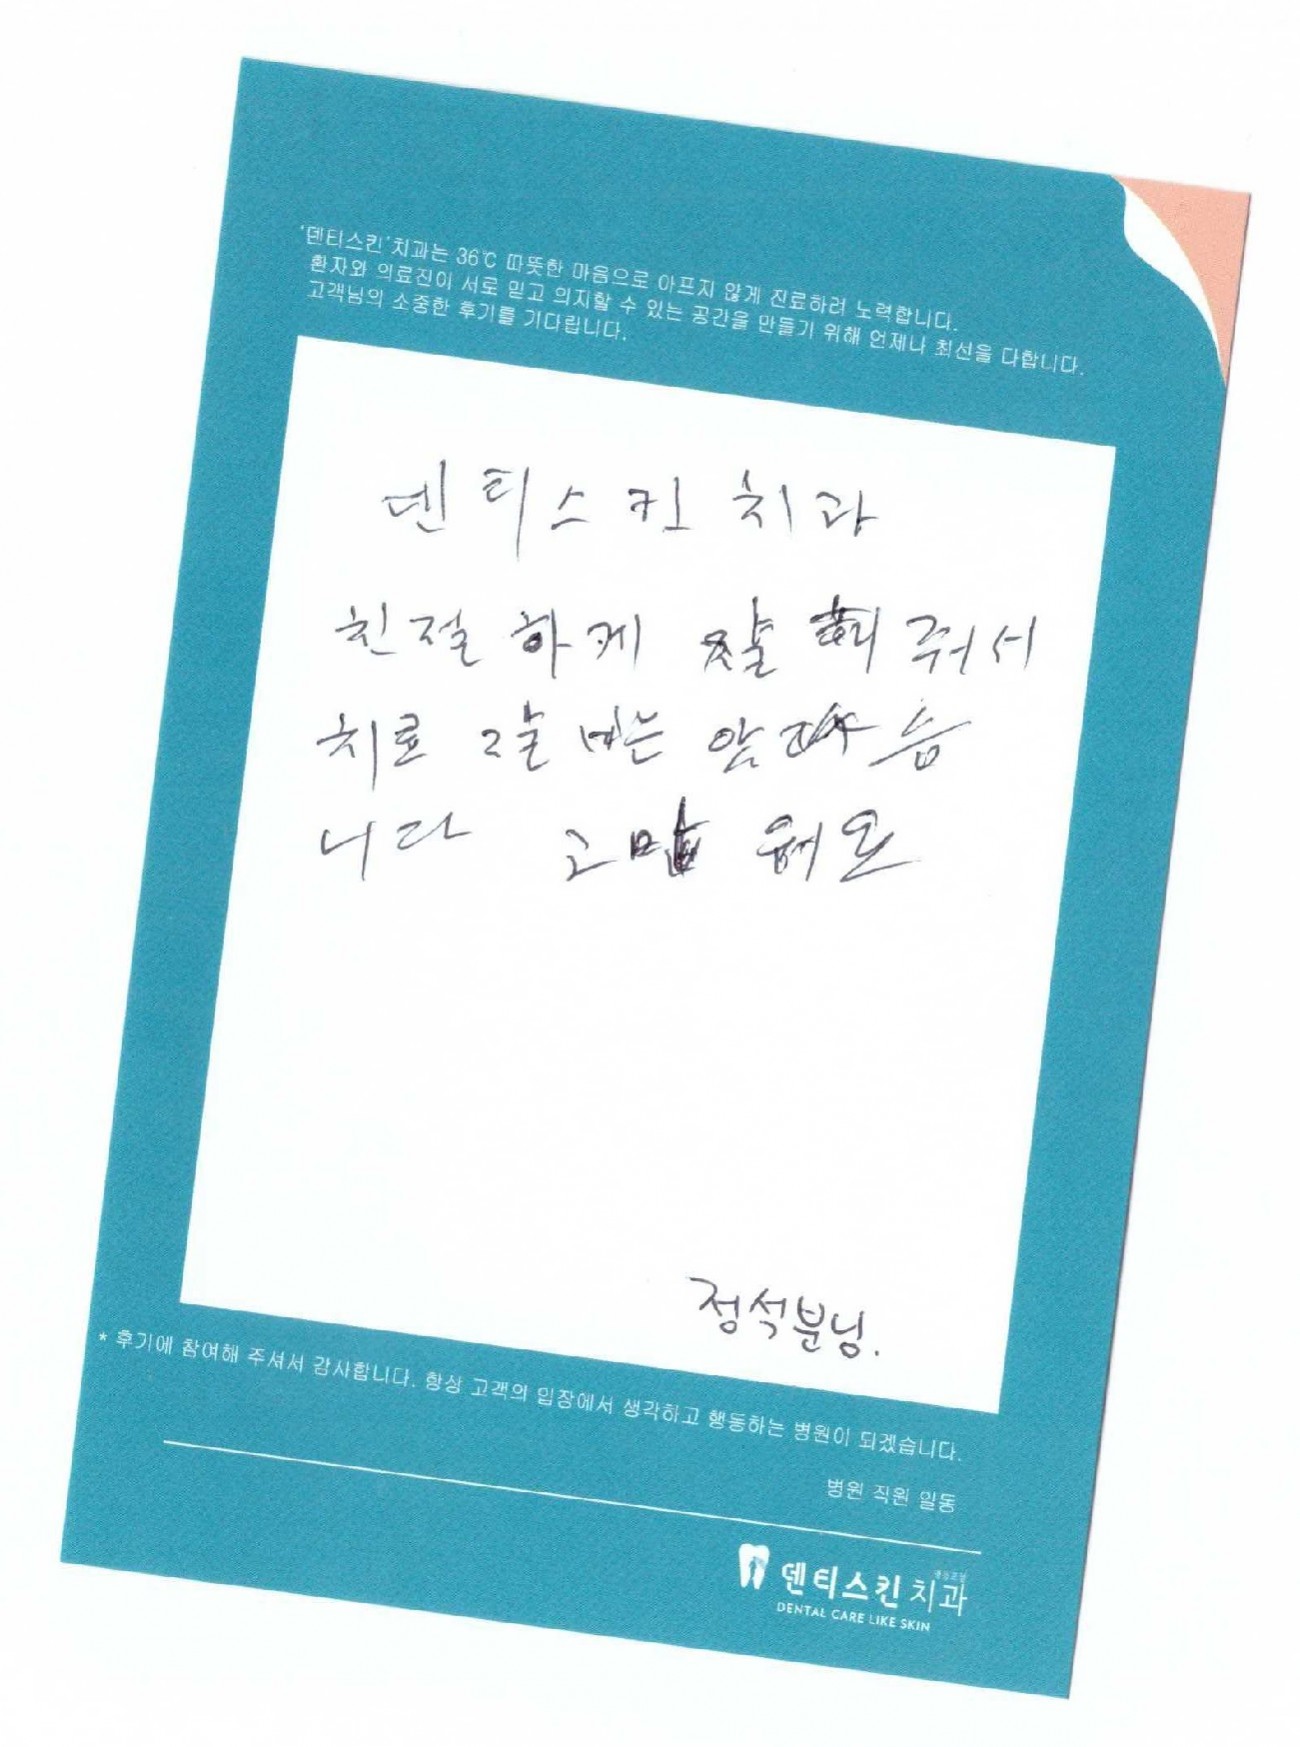 '덴티스킨'치과는 36℃ 따뜻한 마음으로 아프지 않게 진료하려 노력합니다.
환자와 의료진이 서로 믿고 의지할 수 있는 공간을 만들기 위해 언제나 최선을 다합니다.
고객님의 소중한 후기를 기다립니다.
덴티스킨 치과
친절하게 잘 해 줘서
치료 잘 습
니다 고맙 워요
정석분님.
* 후기에 참여해 주셔서 감사합니다. 항상 고객의 입장에서 생각하고 행동하는 병원이 되겠습니다.
병원 직원 일동
덴티스킨치과
DENTAL CARE LIKE SKIN